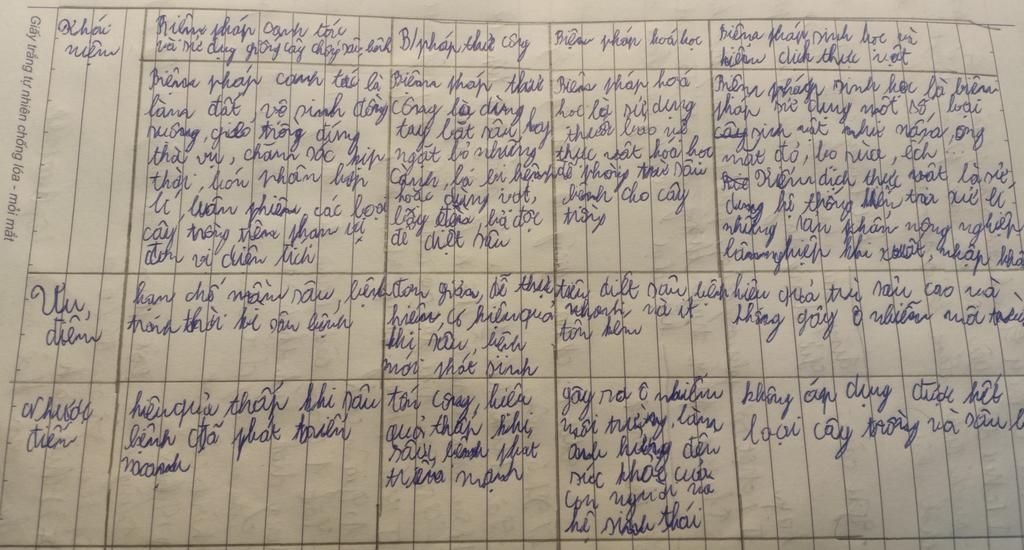 Giấy trắng tự nhiên chống lóa - mỏi mắt
Khái
niệm
Biện pháp canh tác
và sử dụng giống cây chống sâu, bệnh
B/pháp thủ công
Biện pháp hoá học
Biện pháp sinh học và
kiểm dịch thực vật
Biện pháp canh tác là
làm đất, vệ sinh đồng
ruộng, gieo trồng đúng
thời vụ, chăm sóc kịp
thời, bón phân hợp
lí, luân phiên các loại
cây trồng trên
đơn vị diện tích
Biện pháp thủ
công là dùng
tay bắt sâu hay
ngắt bỏ những
cành, lá bị bệnh
hoặc dùng vợt,
bẫy đèn, bả độc
để diệt sâu
Biện pháp hoá
học là sử dụng
thuốc bảo vệ
thực vật hóa học
để phòng trừ sâu
bệnh cho cây
trồng
Biện pháp sinh học là biện
pháp sử dụng một số loại
sinh vật như nấm, ong
mắt đỏ, bọ rùa, ếch
Kiểm dịch thực vật là sử
dụng hệ thống kiểm tra xử lí
những sản phẩm nông nghiệp
lâm nghiệp khi xuất, nhập khẩu
Ưu
điểm
hạn chế mầm sâu, bệnh
tránh thời kì sâu bệnh
đơn giản, dễ thực
hiện, có hiệu quả
khi sâu, bệnh
mới phát sinh
tiêu diệt sâu bệnh
nhanh và ít
tốn kém
hiệu quả trừ sâu cao và
không gây ô nhiễm môi trường
Nhược
điểm
hiệu quả thấp khi sâu
bệnh đã phát triển
mạnh
tốn công, hiệu
quả thấp khi
sâu, bệnh phát
triển mạnh
gây ra ô nhiễm
môi trường, làm
ảnh hưởng đến
sức khoẻ của
con người và
hệ sinh thái
không áp dụng được hết
loại cây trồng và sâu